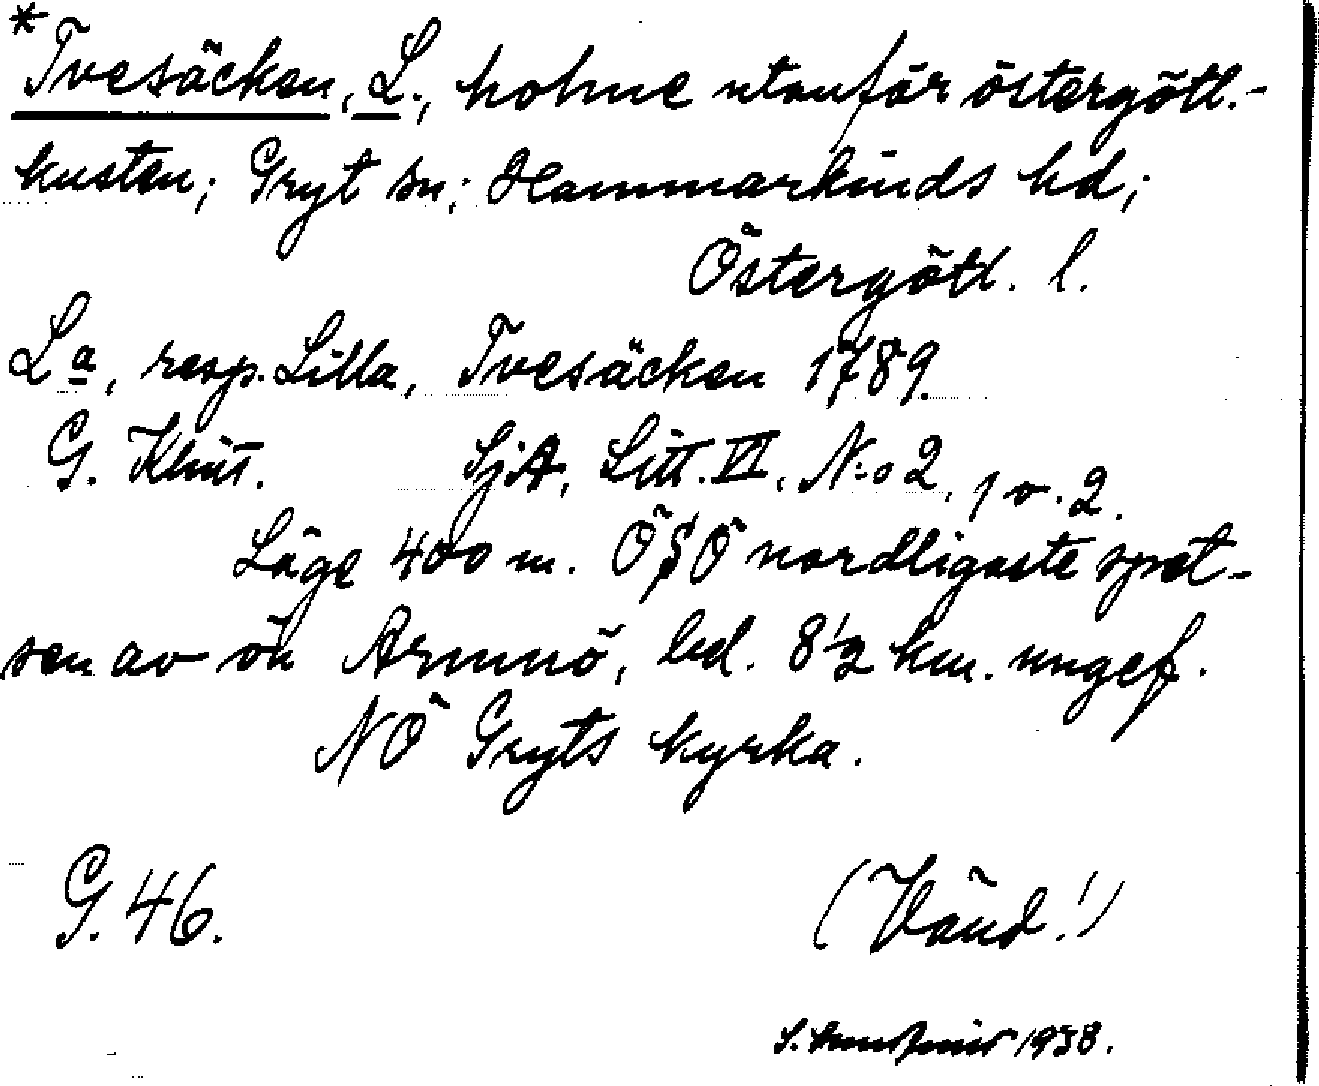 *Tvesäcken, L., holme utanför östergötl.-
kusten; Gryt sn; Hammarkinds hd;
Östergötl. l.
La, resp. Lilla, Tvesäcken 1789.
G. Klint. SjA, Litt. VI, N:o 2, 1 o. 2.
Läge 400 m. OSO nordligaste spet-
sen av ön Armnö, bel. 8 1/2 km. ungef.
NO Gryts kyrka.
G. 46.
(Vänd!)
S. 1938.